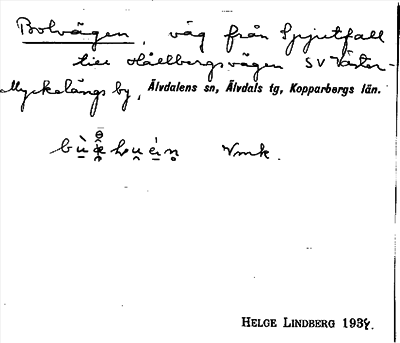 Bolvägen, väg från Spjutfall
till Hållbergsvägen SV Väster-
Myckelängs by, Älvdalens sn, Älvdals tg, Kopparbergs län.
Vmk.
HELGE LINDBERG 1937.